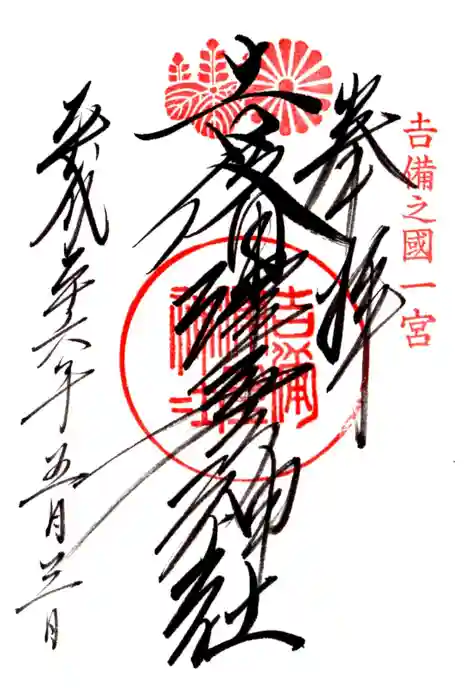 吉備之國一宮
奉拝
吉備津彦神社
吉備
津彦
神社
平成廿六年五月三日